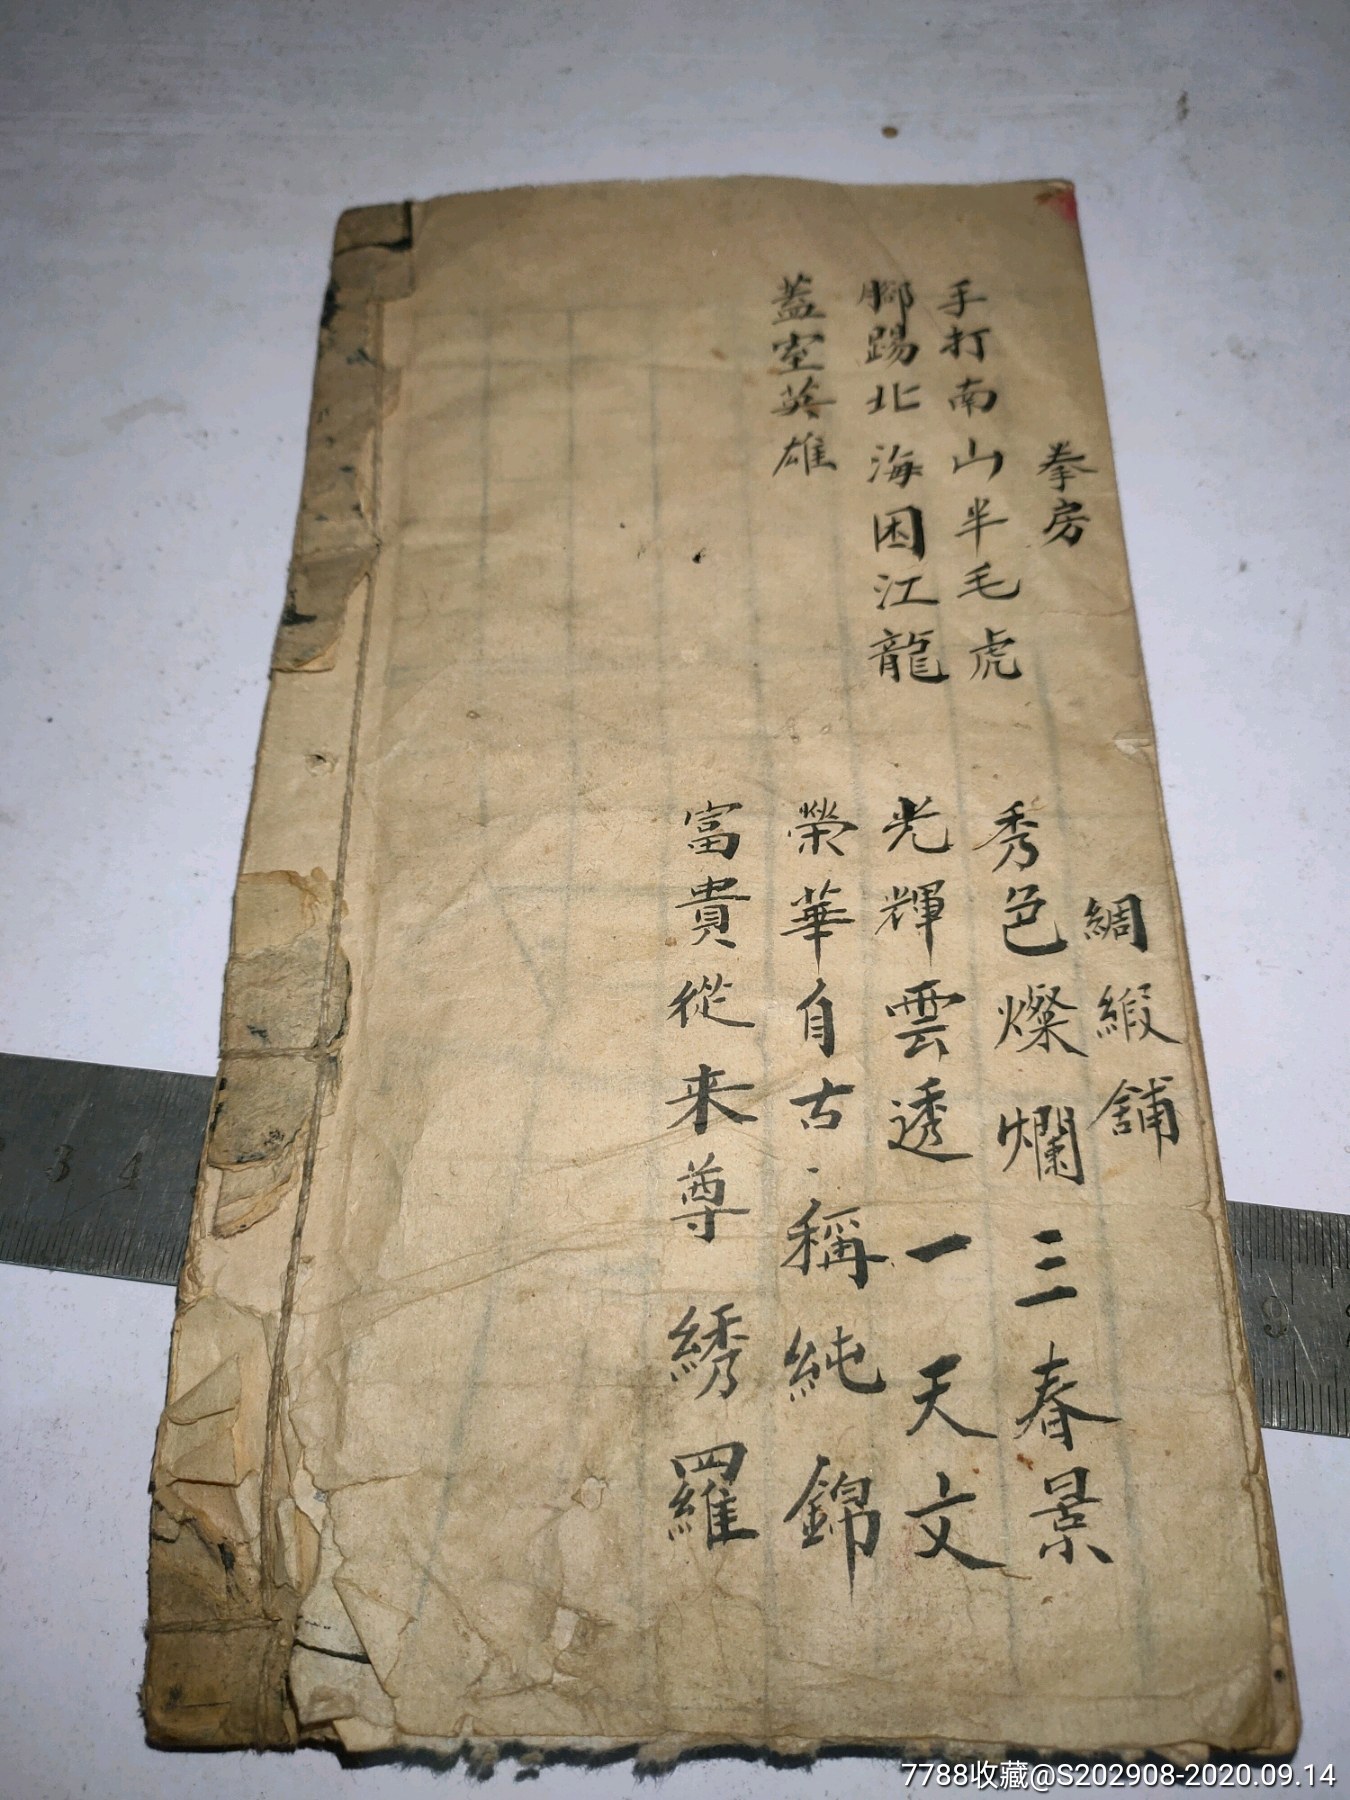 拳房
手打南山半毛虎
腳踢北海困江龍
蓋室英雄
綢緞舖
秀色燦爛三春景
光輝雲透一天文
榮華自古稱純錦
富貴從来尊綉羅
3 4
9
7788收藏@S202908-2020.09.14